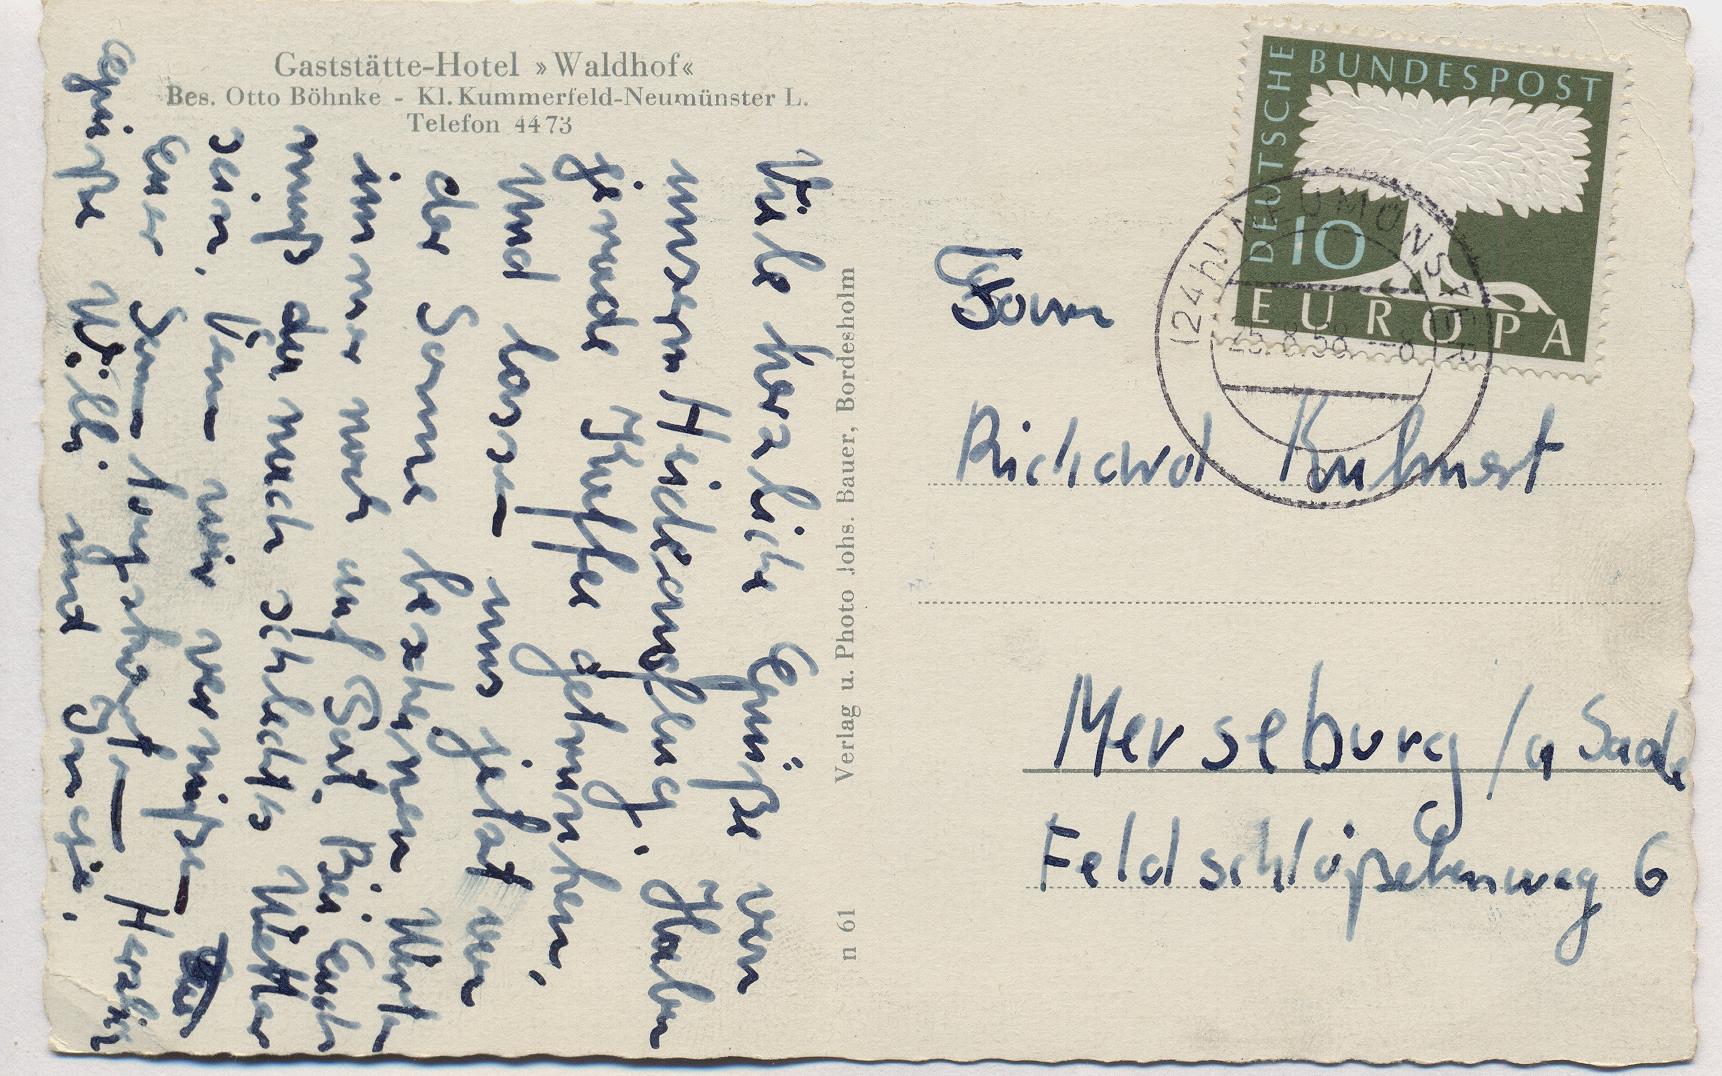 Gaststätte-Hotel »Waldhof«
Bes. Otto Böhnke - Kl. Kummerfeld-Neumünster L.
Telefon 4473
Viele herzliche Grüße von
unserm Heideausflug. Haben
gerade Kaffee getrunken,
und lassen uns jetzt von
der Sonne bescheinen. Warten
immer noch auf Post. Bei Euch
muß auch schlechtes Wetter
sein, denn wir vermißen
Euer Herzliche
Grüße Willi und Inge.
Verlag u. Photo Johs. Bauer, Bordesholm
n 61
DEUTSCHE BUNDESPOST
10
EUROPA
(24b) NEUMÜNSTER
25.8.58
Richard Kuhnert
Merseburg /a Saale
Feldschlößchenweg 6